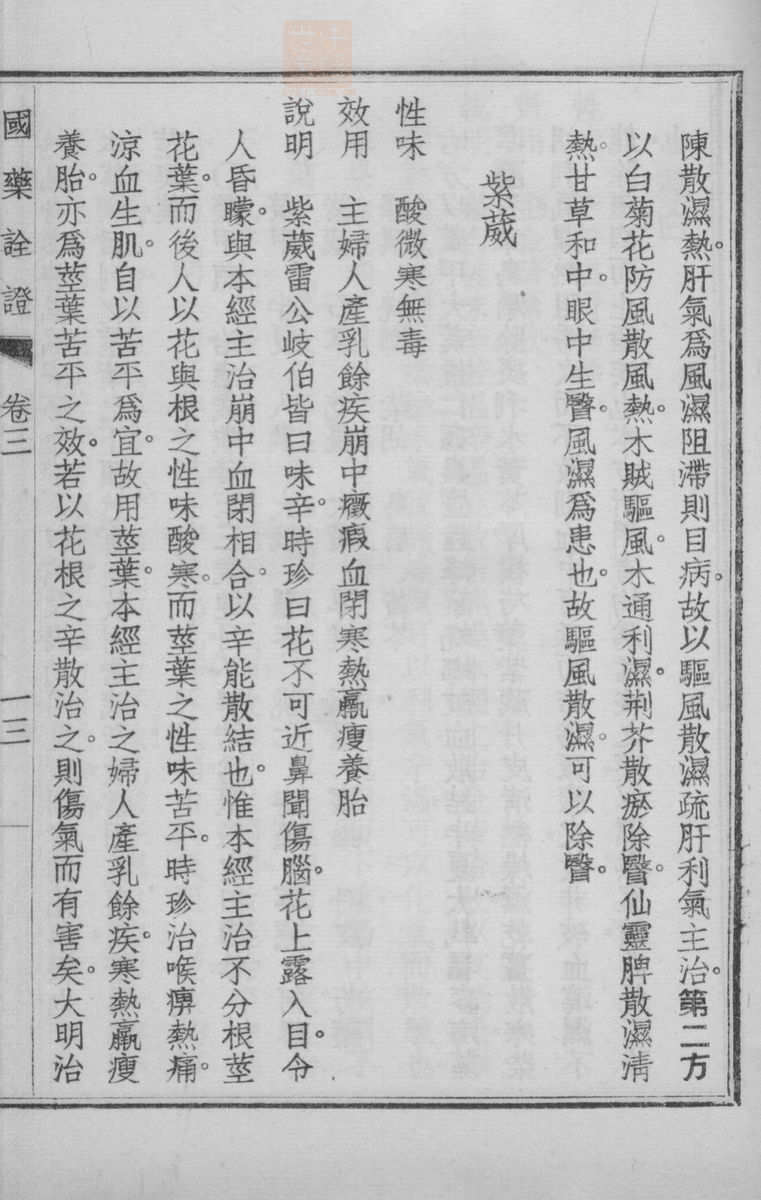 陳散濕熱。肝氣爲風濕阻滯則目病。故以驅風散濕疏肝利氣主治。第二方
以白菊花防風散風熱。木賊驅風。木通利濕。荆芥散瘀除瞖。仙靈脾散濕清
熱。甘草和中。眼中生瞖。風濕爲患也。故驅風散濕。可以除瞖。
紫葳
性味　酸微寒無毒
效用　主婦人產乳餘疾崩中癥瘕血閉寒熱羸瘦養胎
說明　紫葳雷公岐伯皆曰味辛。時珍曰花不可近鼻聞傷腦。花上露入目。令
人昏矇。與本經主治崩中血閉相合。以辛能散結也。惟本經主治不分根莖
花葉。而後人以花與根之性味酸寒。而莖葉之性味苦平。時珍治喉痹熱痛。
涼血生肌。自以苦平爲宜。故用莖葉。本經主治之婦人產乳餘疾。寒熱羸瘦
養胎。亦爲莖葉苦平之效。若以花根之辛散治之。則傷氣而有害矣。大明治
國藥詮證　卷三　一三